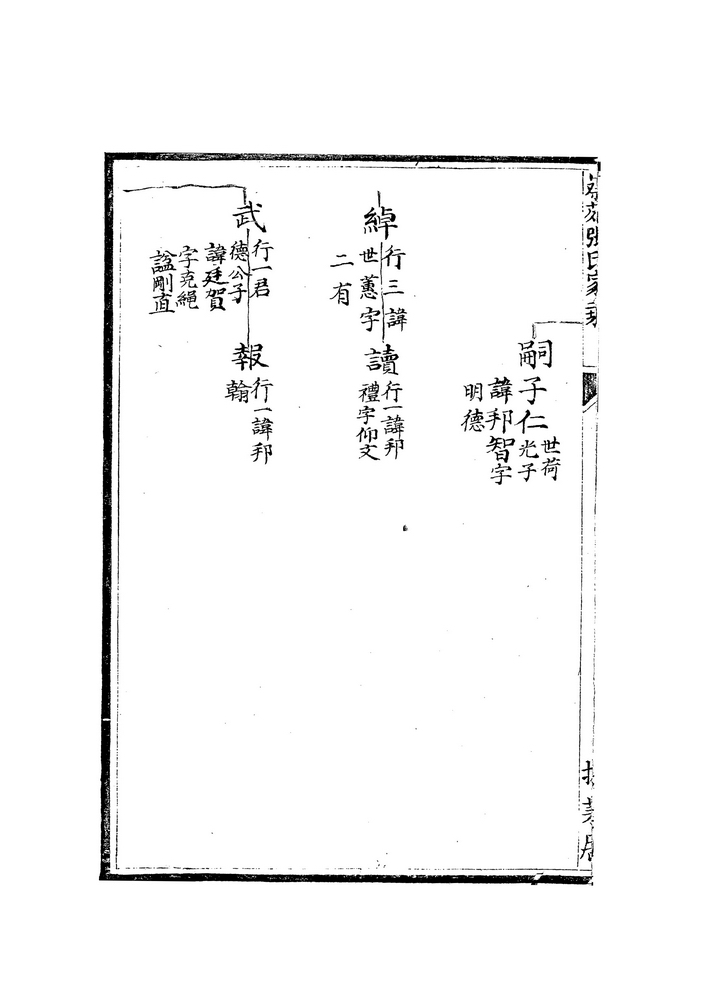 張氏家
嗣子仁
世荷
光子
諱邦智字
明德
綽
行三諱
世蕙字
二有
讀
行一諱邦
禮字仰文
武
行一君
德公子
諱廷賀
字克繩
諡剛直
報
行一諱邦
翰